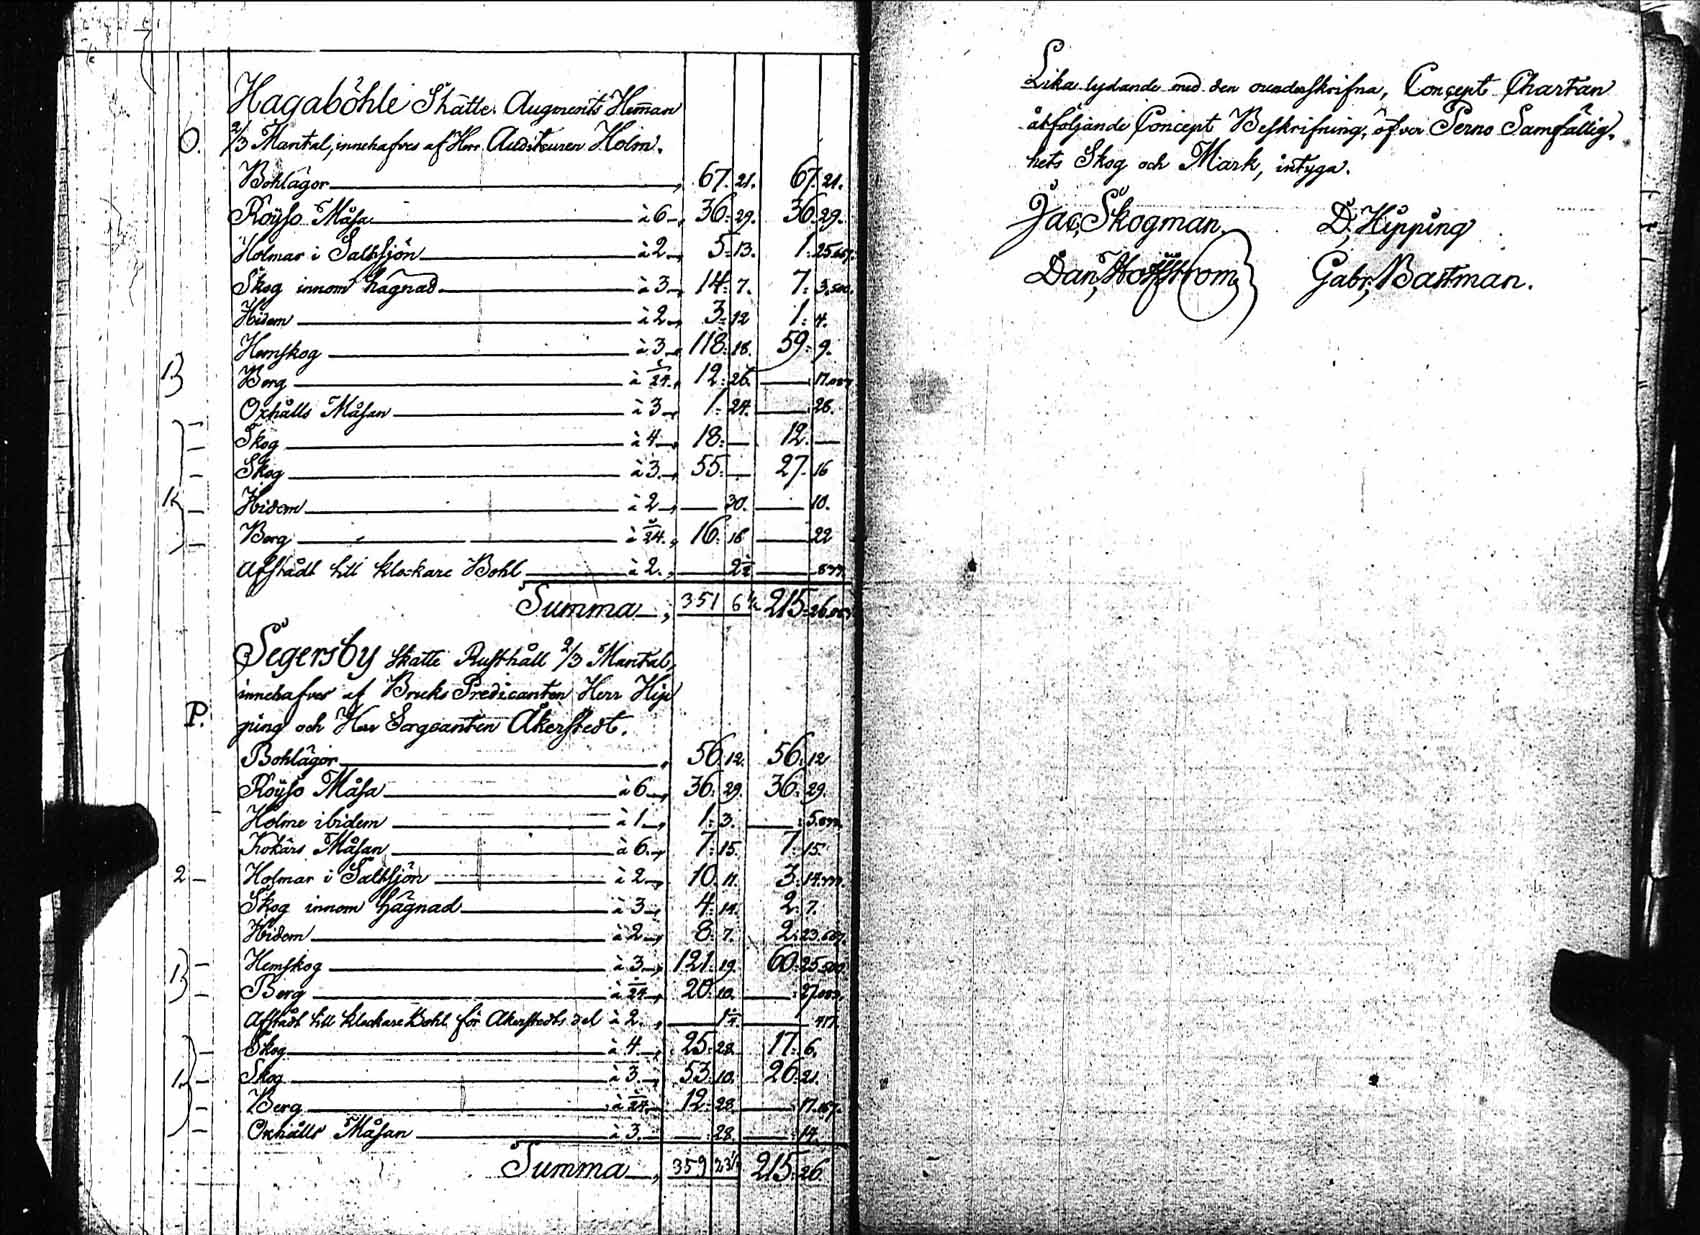 Hagaböhle Skatte. Augments Heman
O. 2/3 Mantal, innehafves af Herr Auditeuren Holm.
Bohlägor 67. 21. 67. 21.
Röÿsö Måsa à 6 36. 29. 36. 29.
Holmar i Saltsjön à 2 5. 13. 1. 25.667.
Skog innom hägnad à 3 14. 7. 7. 3.500.
Ibidem à 2 3. 12 1. 4.
Hemskog à 3 118. 18. 59. 9.
B Berg 12. 26. 17.
Oxhålls Måsan à 3 1. 24. 28.
Skog à 4 18. 12.
Skog à 3. 55. 27. 16
Ibidem à 2 30. 10.
Berg 16. 16 22
Afstådt till klockare Bohl à 2. 2½
Summa 351 6½ 215. 26.
Segersby Skatte Rusthåll 2/3 Mantal,
innehafves af Bruks Predicanten Herr Hip
P. ping och Herr Sergeanten Åkerstedt.
Bohlägor 56. 12. 56. 12
Röÿsö Måsa à 6 36. 29. 36. 29.
Holme ibidem à 1 1. 3. 5.
Kokärs Måsan à 6. 7. 15. 7. 15.
2 Holmar i Saltsjön à 2 10. 11. 3.
Skog innom hägnad à 3 4. 14. 2. 7.
Ibidem à 2 8. 7. 2. 23.
B Hemskog à 3 121. 19. 60. 25.500.
Berg 20. 10. 27.
Afstådt till klockare Bohl för Åkerstedts del à 2. 417
Skog à 4 25. 28. 17. 6.
Skog à 3 53. 10. 26. 21.
Berg 12. 28. 17.
Oxhålls Måsan à 3. 28. 14.
Summa 359 215. 26.
Lika lydande med den orenderskrifna, Concept Chartan
åtföljande Concept Beskrifning, öfver Perno Samfällig-
hets Skog och Mark, intyga.
Jac. Skogman. D. Hipping
Dan. Hoffström Gabr. Bartman.